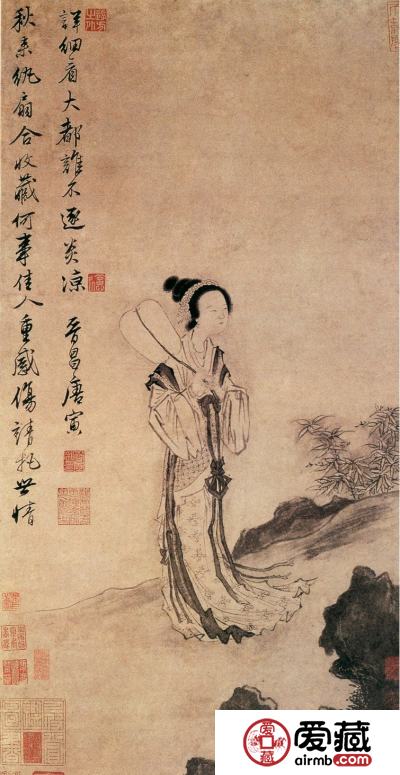 秋来纨扇合收藏何事佳人重感伤请托世情
详细看大都谁不逐炎凉 晋昌唐寅
爱藏
airmb.com